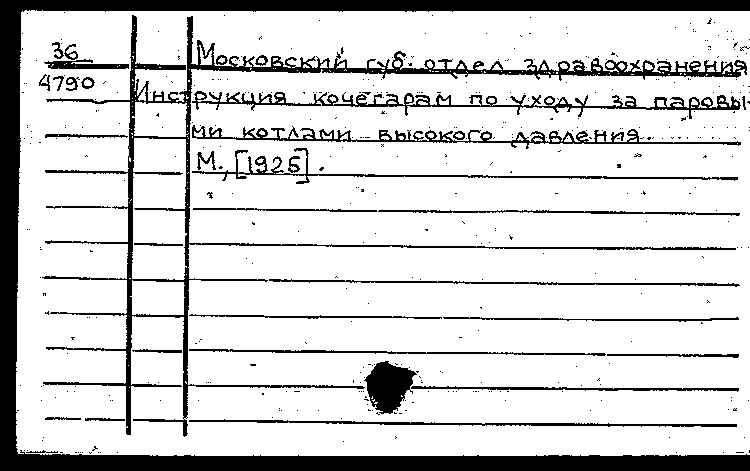 36
Московский губ. отдел здравоохранения
4790
Инструкция кочегарам по уходу за паровы-
ми котлами высокого давления.
М., [1925].